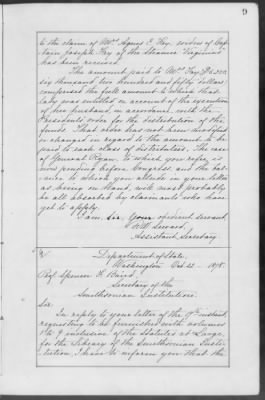 9
to the claim of Mrs Agnes S. Fry, widow of Cap-
tain Joseph Fry of the Steamer Virginius
has been received.
The amount paid to Mrs Fry,
six thousand two hundred and fifty dollars
comprised the full amount to which that
lady was entitled on account of the execution
of her husband, in accordance with the
President's order for the distribution of the
funds. That order has not been modified
or changed in regard to the amounts to be
paid to each class of distributees. The case
of General Ryan, to which you refer, is
now pending before Congress, and the bal-
ance to which you allude in your letter
as being on hand, will most probably
be all absorbed by claimants who have
yet to apply.
I am, Sir, Your obedient servant,
Seward,
Assistant Secretary
Department of State,
Washington Oct. 1878.
Prof. Spencer F. Baird,
Secretary of the
Smithsonian Institution.
Sir:
In reply to your letter of the instant,
requesting to be furnished with volumes
1 to 9 inclusive of the Statutes at Large,
for the Library of the Smithsonian Insti-
tution, I have to inform you that the